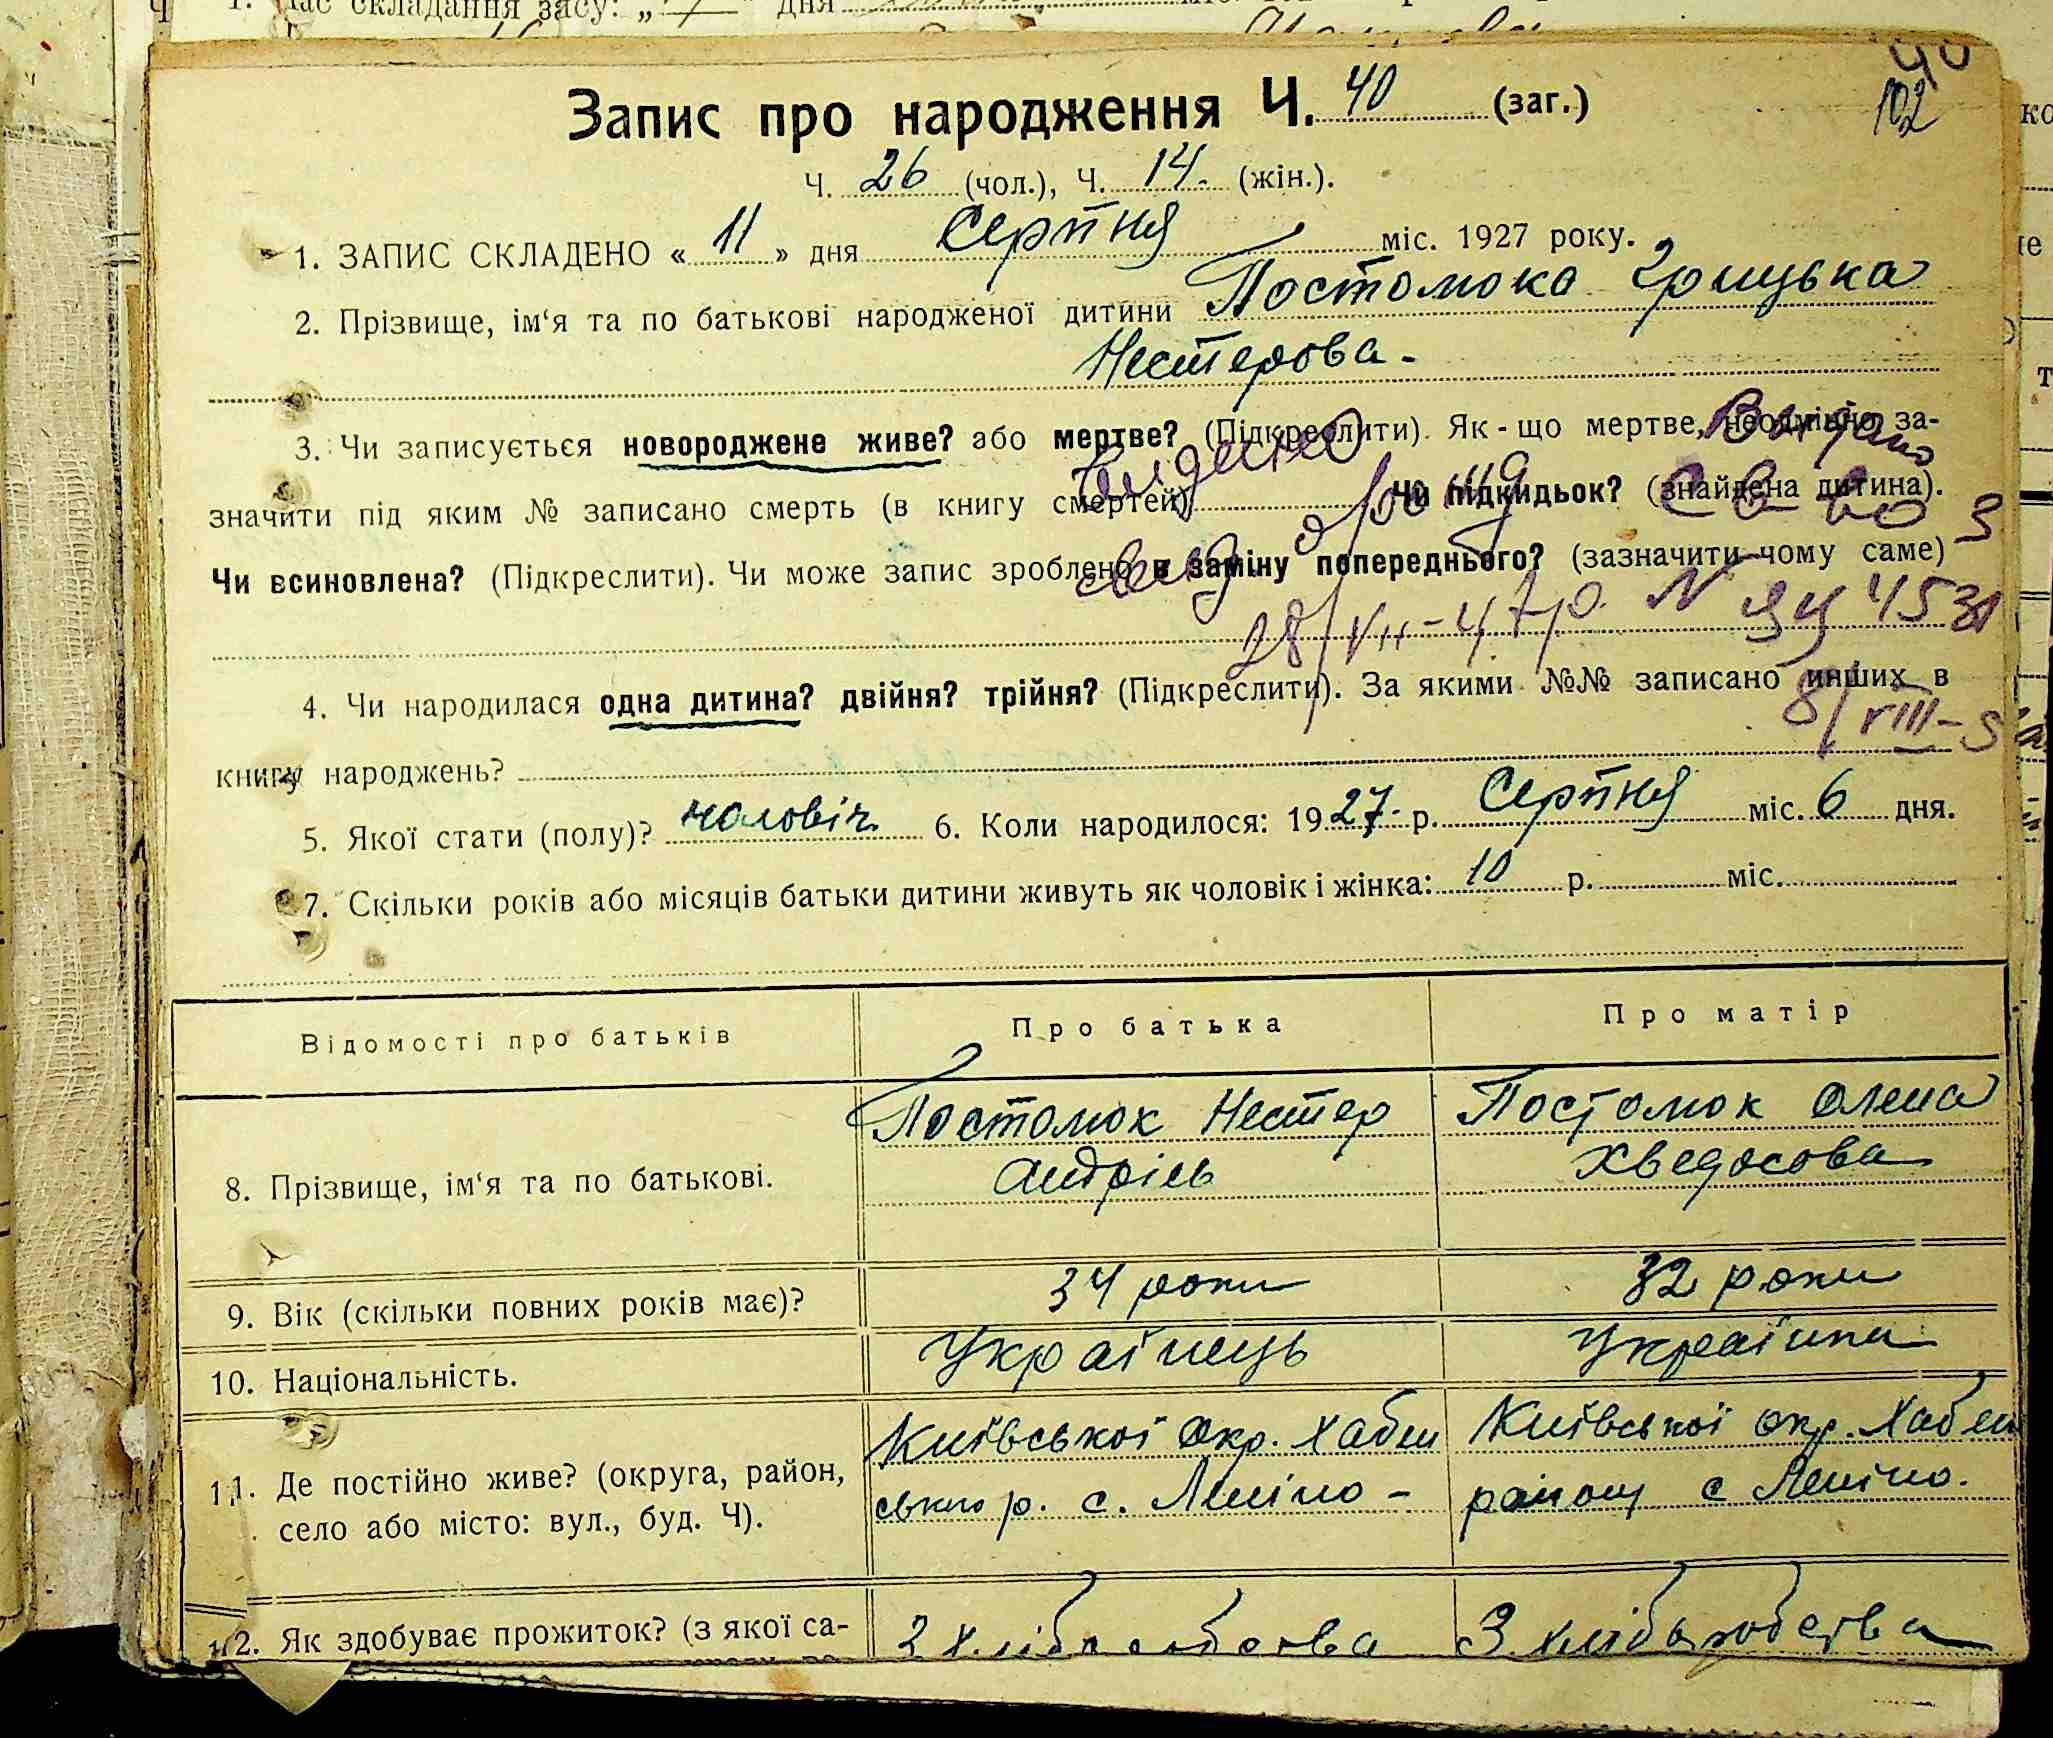 1. Час складання засу: „ " дня
40
102
Запис про народження Ч. 40 (заг.)
Ч. 26 (чол.), Ч. 14. (жін.).
1. ЗАПИС СКЛАДЕНО « 11 » дня Серпня міс. 1927 року.
2. Прізвище, ім‘я та по батькові народженої дитини Постомока Грицька
Нестерова.
3. Чи записується новороджене живе? або мертве? (Підкреслити). Як-що мертве, неодмінно за-
значити під яким № записано смерть (в книгу смертей) Чи підкидьок? (знайдена дитина).
Чи всиновлена? (Підкреслити). Чи може запис зроблено в заміну попереднього? (зазначити чому саме)
28/VII-47р. № ЯЦ
4. Чи народилася одна дитина? двійня? трійня? (Підкреслити). За якими №№ записано инших в
8/VIII-
книгу народжень?
5. Якої стати (полу)? чоловіч 6. Коли народилося: 1927 р. Серпня міс. 6 дня.
7. Скільки років або місяців батьки дитини живуть як чоловік і жінка: 10 р. міс.
Відомості про батьків Про батька Про матір
8. Прізвище, ім‘я та по батькові. Постомок Нестер Постомок Олена
Андріїв Хведосова
9. Вік (скільки повних років має)? 34 роки 32 роки
10. Національність. Українець Українка
11. Де постійно живе? (округа, район, Київської Окр. Хабен Київської окр. Хабен
село або місто: вул., буд. Ч). ського р. с. Леніно - району с Леніно.
12. Як здобуває прожиток? (з якої са- З хліборобства З хліборобства